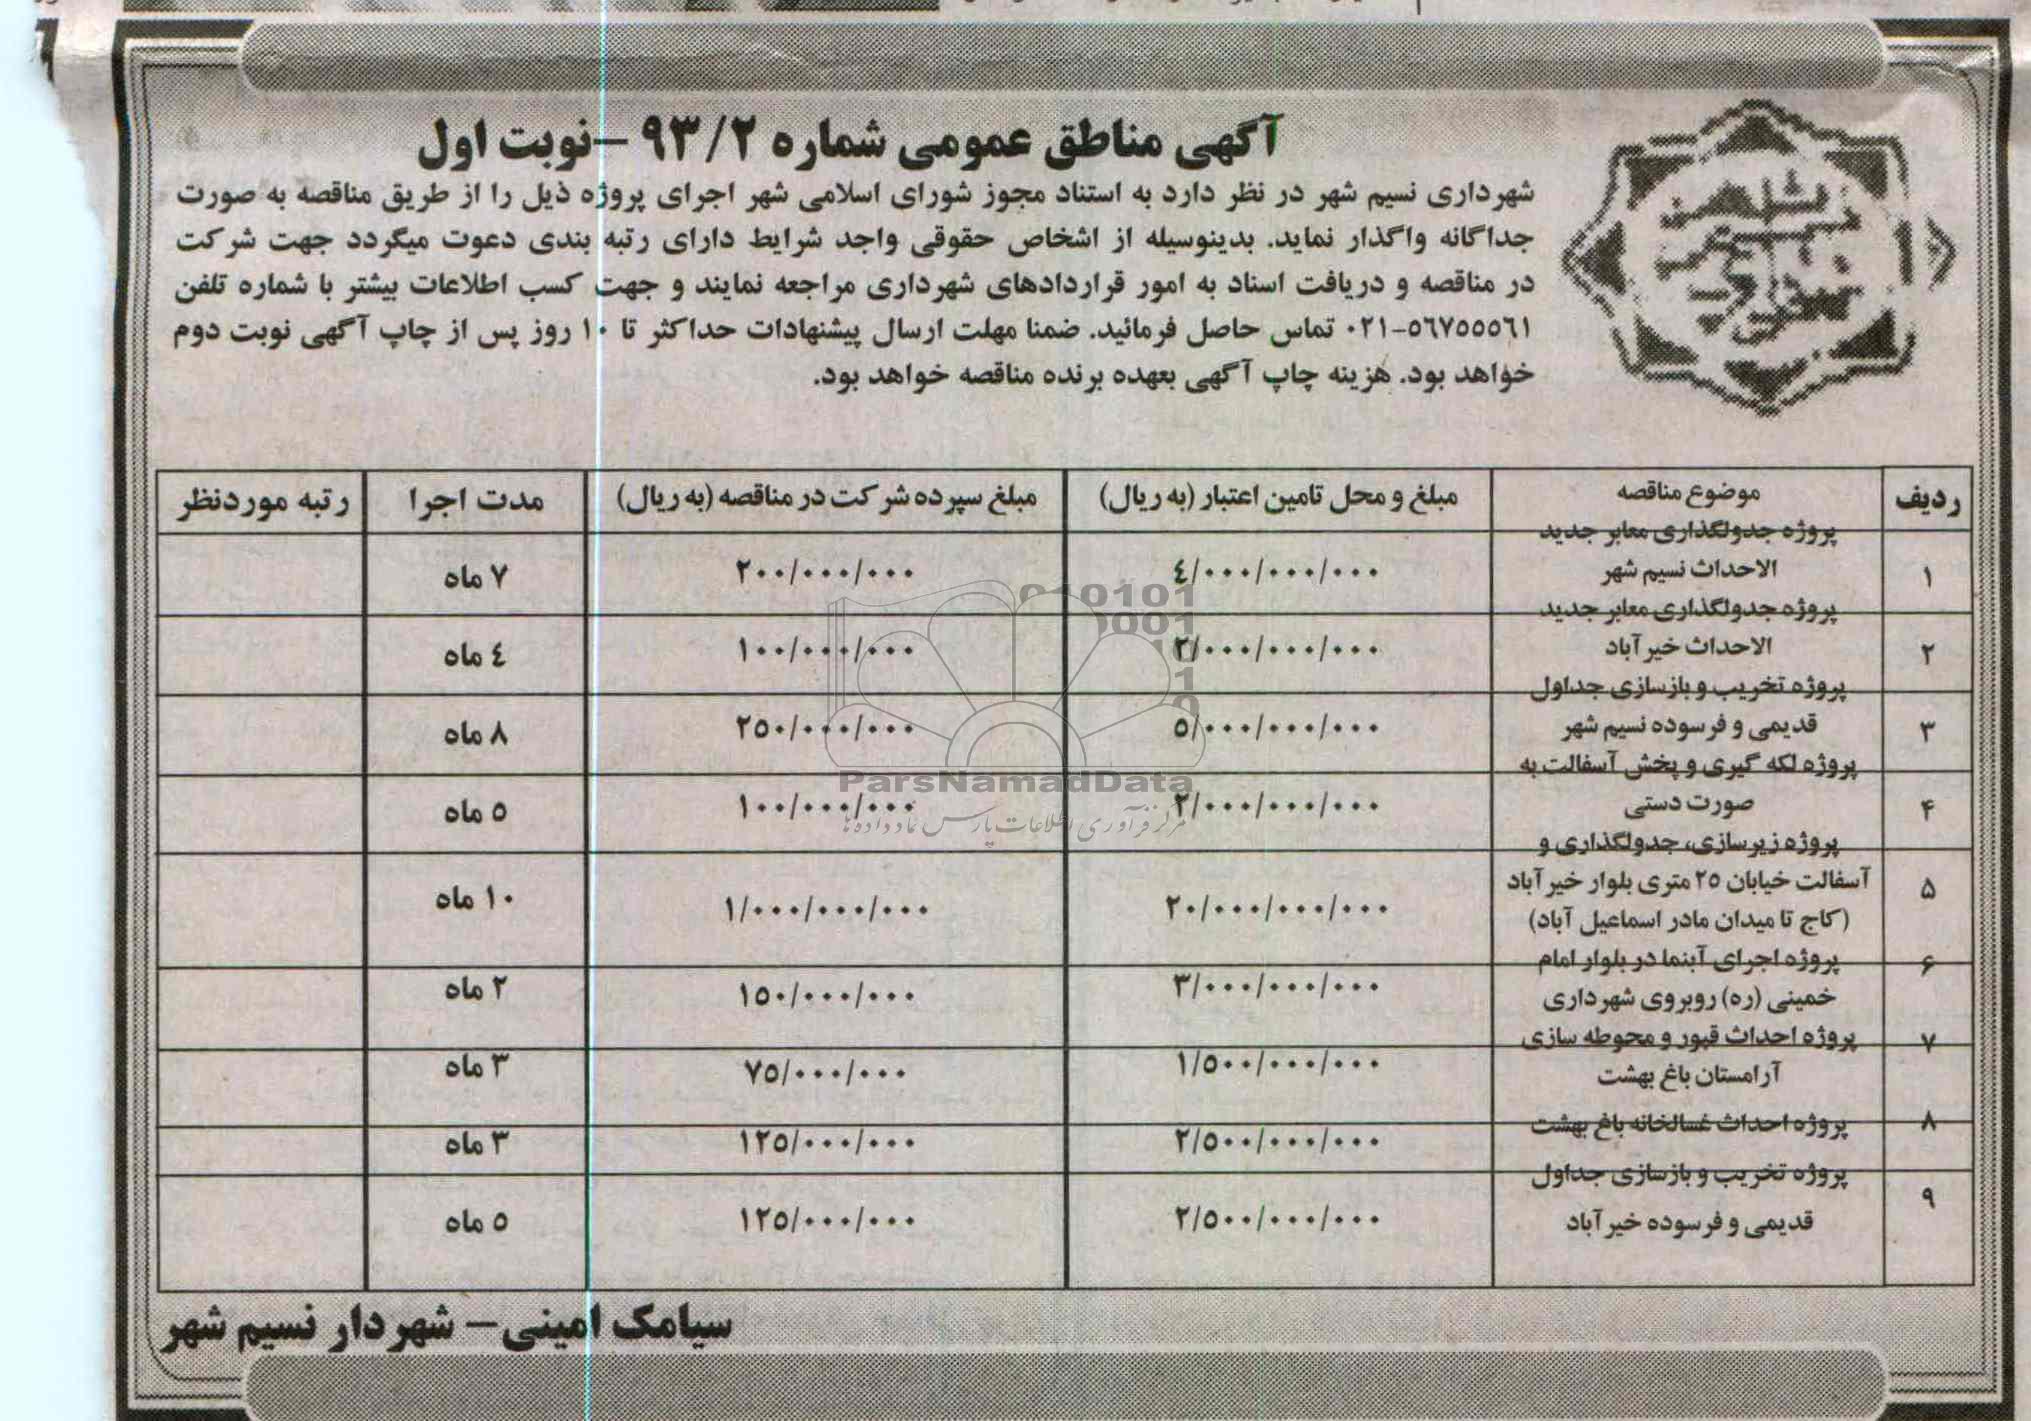 آگهی مناطق عمومی شماره ۹۳/۲ –نوبت اول
شهرداری نسیم شهر در نظر دارد به استناد مجوز شورای اسلامی شهر اجرای پروژه ذیل را از طریق مناقصه به صورت
جداگانه واگذار نماید. بدینوسیله از اشخاص حقوقی واجد شرایط دارای رتبه بندی دعوت میگردد جهت شرکت
در مناقصه و دریافت اسناد به امور قراردادهای شهرداری مراجعه نمایند و جهت کسب اطلاعات بیشتر با شماره تلفن
۰۲۱-۵۶۷۵۵۵۶۱ تماس حاصل فرمائید. ضمنا مهلت ارسال پیشنهادات حداکثر تا ۱۰ روز پس از چاپ آگهی نوبت دوم
خواهد بود. هزینه چاپ آگهی بعهده برنده مناقصه خواهد بود.
ردیف موضوع مناقصه مبلغ و محل تامین اعتبار (به ریال) مبلغ سپرده شرکت در مناقصه (به ریال) مدت اجرا رتبه موردنظر
پروژه جدولگذاری معابر جدید
۱ الاحداث نسیم شهر ٤/۰۰۰/۰۰۰/۰۰۰ ۲۰۰/۰۰۰/۰۰۰ ۷ ماه
پروژه جدولگذاری معابر جدید
۲ الاحداث خیر آباد ۲/۰۰۰/۰۰۰/۰۰۰ ۱۰۰/۰۰۰/۰۰۰ ٤ ماه
پروژه تخریب و بازسازی جداول
۳ قدیمی و فرسوده نسیم شهر ۵/۰۰۰/۰۰۰/۰۰۰ ۲۵۰/۰۰۰/۰۰۰ ۸ ماه
پروژه لکه گیری و پخش آسفالت به
۴ صورت دستی ۲/۰۰۰/۰۰۰/۰۰۰ ۱۰۰/۰۰۰/۰۰۰ ۵ ماه
پروژه زیرسازی، جدولگذاری و
۵ آسفالت خیابان ۲۵ متری بلوار خیر آباد ۲۰/۰۰۰/۰۰۰/۰۰۰ ۱/۰۰۰/۰۰۰/۰۰۰ ۱۰ ماه
(کاج تا میدان مادر اسماعیل آباد)
۶ پروژه اجرای آبنما در بلوار امام ۳/۰۰۰/۰۰۰/۰۰۰ ۱۵۰/۰۰۰/۰۰۰ ۲ ماه
خمینی (ره) روبروی شهرداری
۷ پروژه احداث قبور و محوطه سازی ۱/۵۰۰/۰۰۰/۰۰۰ ۷۵/۰۰۰/۰۰۰ ۳ ماه
آرامستان باغ بهشت
۸ پروژه احداث غسالخانه باغ بهشت ۲/۵۰۰/۰۰۰/۰۰۰ ۱۲۵/۰۰۰/۰۰۰ ۳ ماه
پروژه تخریب و بازسازی جداول
۹ قدیمی و فرسوده خیر آباد ۲/۵۰۰/۰۰۰/۰۰۰ ۱۲۵/۰۰۰/۰۰۰ ۵ ماه
ParsNamadData
مرکز فرآوری اطلاعات پارس نماد داده ها
سیامک امینی– شهردار نسیم شهر